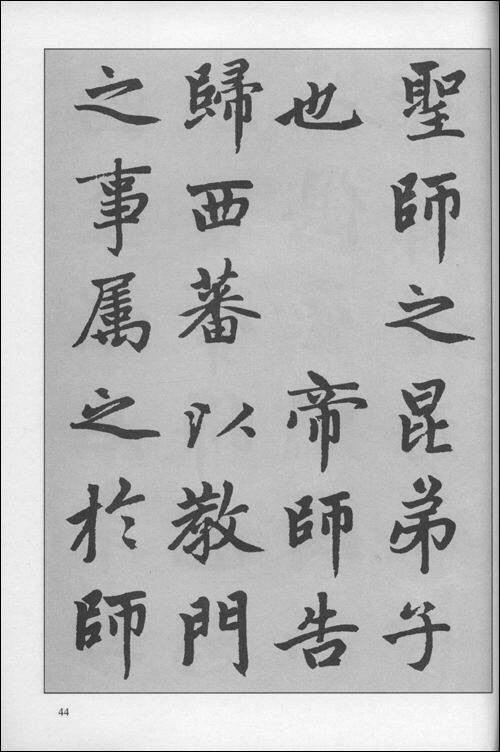 聖師之昆弟子
也帝師告
歸西蕃以教門
之事属之於師
44